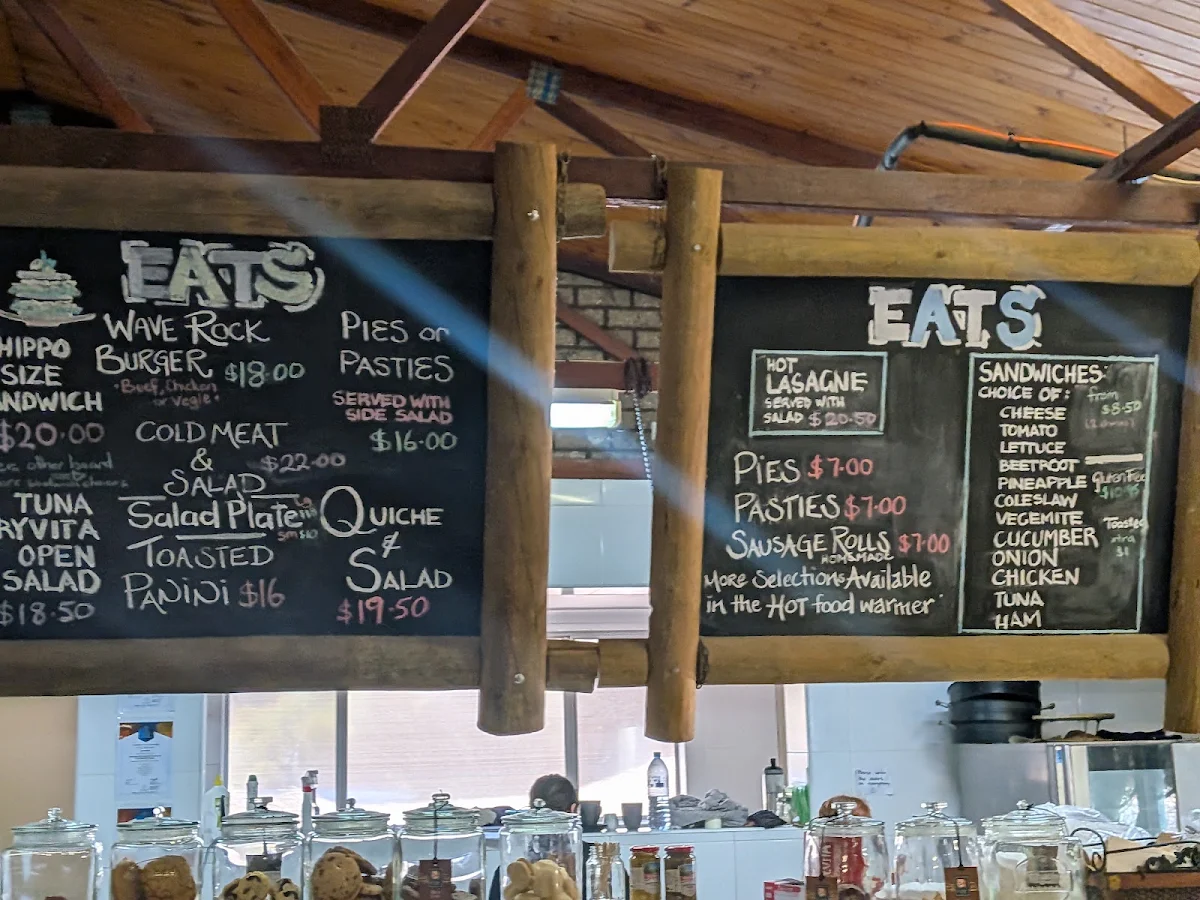 EATS
HIPPO
SIZE
NDWICH
$20.00
other board
TUNA
RYVITA
OPEN
SALAD
$18.50
WAVE ROCK
BURGER $18.00
•Beef, Chicken
or Vegie•
COLD MEAT
& $22.00
SALAD
Salad Plate
TOASTED
PANINI $16
PIES or
PASTIES
SERVED WITH
SIDE SALAD
$16.00
QUICHE
&
SALAD
$19.50
EATS
HOT
LASAGNE
SERVED WITH
SALAD $20.50
PIES $7.00
PASTIES $7.00
SAUSAGE ROLLS $7.00
HOMEMADE
More Selections Available
in the Hot food warmer
SANDWICHES:
CHOICE OF:
CHEESE
TOMATO
LETTUCE
BEETROOT
PINEAPPLE
COLESLAW
VEGEMITE
CUCUMBER
ONION
CHICKEN
TUNA
HAM
from
$8.50
gluten free
Toasted
xtra
$1